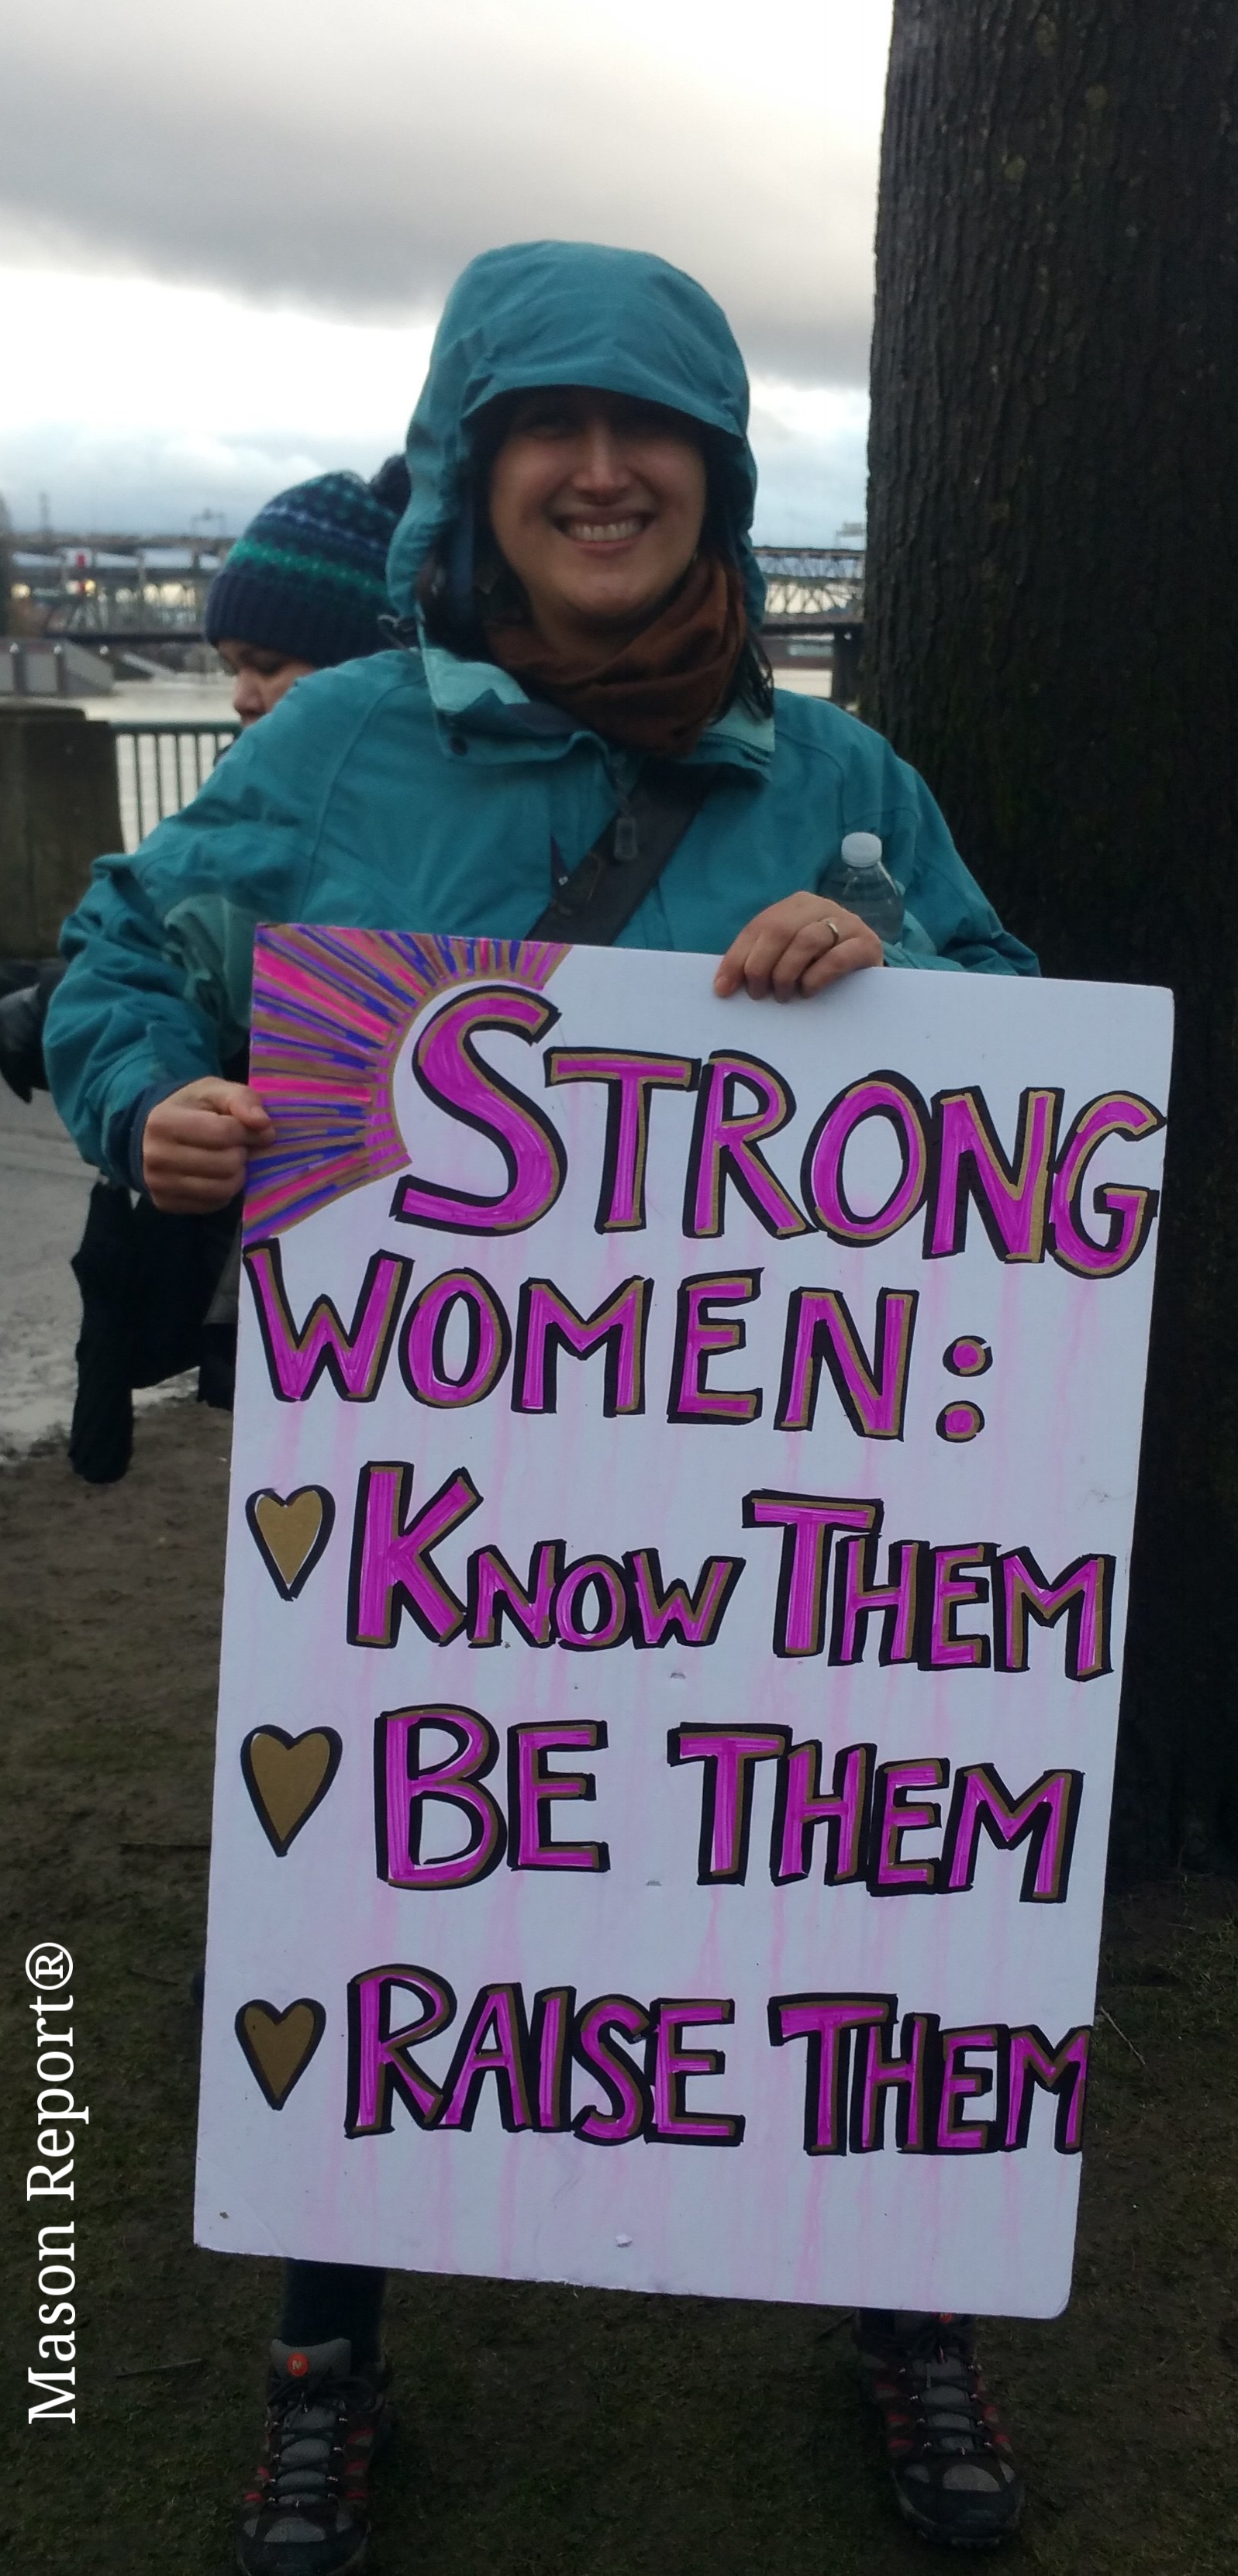 STRONG
WOMEN:
KNOW THEM
BE THEM
RAISE THEM
Mason Report®